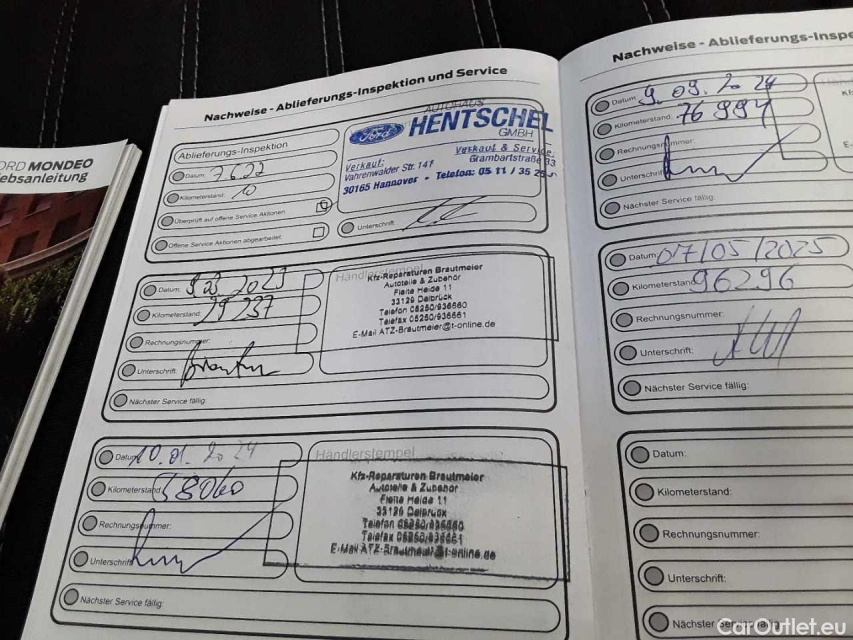 ORD MONDEO
ebsanleitung
Nachweise - Ablieferungs-Inspektion und Service
Ablieferungs-Inspektion
Datum: 7.6.22
Kilometerstand: 10
Überprüft auf offene Service Aktionen
Offene Service Aktionen abgearbeitet
AUTOHAUS
Ford HENTSCHEL
GMBH
Verkauf: Verkauf & Service:
Vahrenwalder Str. 141 Grambartstraße 33
30165 Hannover - Telefon: 05 11 / 35 25
Unterschrift:
Datum: 2023
Kilometerstand: 237
Rechnungsnummer:
Unterschrift:
Nächster Service fällig:
Händlerstempel
Kfz-Reparaturen Brautmeier
Autoteile & Zubehör
Flette Heide 11
33129 Delbrück
Telefon 05250/936660
Telefax 05250/936661
E-Mail ATZ-Brautmeier@t-online.de
Datum: 10.01.2024
Kilometerstand: 58060
Rechnungsnummer:
Unterschrift:
Nächster Service fällig:
Händlerstempel
Kfz-Reparaturen Brautmeier
Autoteile & Zubehör
Flette Heide 11
33129 Delbrück
Telefon 05250/936660
Telefax 05250/936661
E-Mail ATZ-Brautmeier@t-online.de
Nachweise - Ablieferungs-Inspe
Datum: 9.09.2024
Kilometerstand: 76994
Rechnungsnummer:
Unterschrift:
Nächster Service fällig:
Datum: 07/05/2025
Kilometerstand: 96296
Rechnungsnummer:
Unterschrift:
Nächster Service fällig:
Datum:
Kilometerstand:
Rechnungsnummer:
Unterschrift:
Nächster Service fällig:
CarOutlet.eu